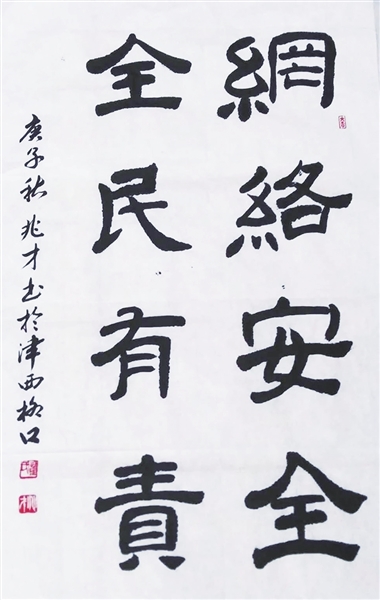 網絡安全
全民有責
庚子秋兆才書於津西楊口